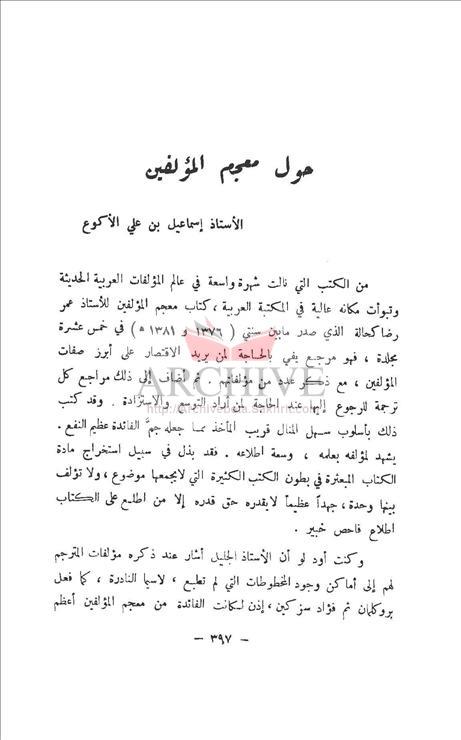 حول معجم المؤلفين
الأستاذ إسماعيل بن علي الأكوع
من الكتب التي نالت شهرة واسعة في عالم المؤلفات العربية الحديثة
وتبوأت مكانه عالية في المكتبة العربية ، كتاب معجم المؤلفين للأستاذ عمر
رضا كحالة الذي صدر مابين سنتي ( ١٣٧٦ و ١٣٨١ ه ) في خمس عشرة
مجلدة ، فهو مرجع يفي بالحاجة لمن يريد الاقتصار على أبرز صفات
المؤلفين ، مع ذكر عدد من مؤلفاتهم . ثم اضاف إلى ذلك مراجع كل
ترجمة للرجوع إليها عند الحاجة لمن أراد التوسع والاستزادة . وقد كتب
ذلك بأسلوب سهل المنال قريب المأخذ مما جعله جمَّ الفائدة عظيم النفع .
يشهد لمؤلفه بعلمه ، وسعة اطلاعه . فقد بذل في سبيل استخراج مادة
الكتاب المبعثرة في بطون الكتب الكثيرة التي لايجمعها موضوع ، ولا تؤلف
بينها وحدة ، جهداً عظيماً لايقدره حق قدره إلا من اطلع على الكتاب
اطلاع فاحص خبير .
وكنت أود لو أن الأستاذ الجليل أشار عند ذكره مؤلفات المترجم
لهم إلى أماكن وجود المخطوطات التي لم تطبع ، لاسيما النادرة ، كما فعل
بروكلمان ثم فؤاد سزكين ، إذن لكانت الفائدة من معجم المؤلفين أعظم
– ٣٩٧ –
ARCHIVE